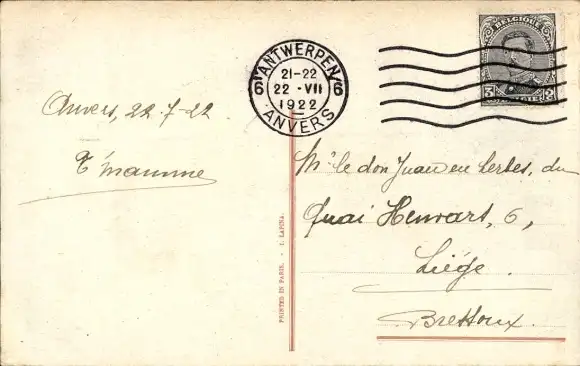 BELGIQUE
3 2
ANTWERPEN
6 6
21-22
22 · VII
1922
ANVERS
Anvers, 22-7-22
T'mamme
Mr le don Juan en herbes, du
Quai Henvart, 6,
Liége.
Bressoux.
PRINTED IN PARIS. - I. LAPINA.